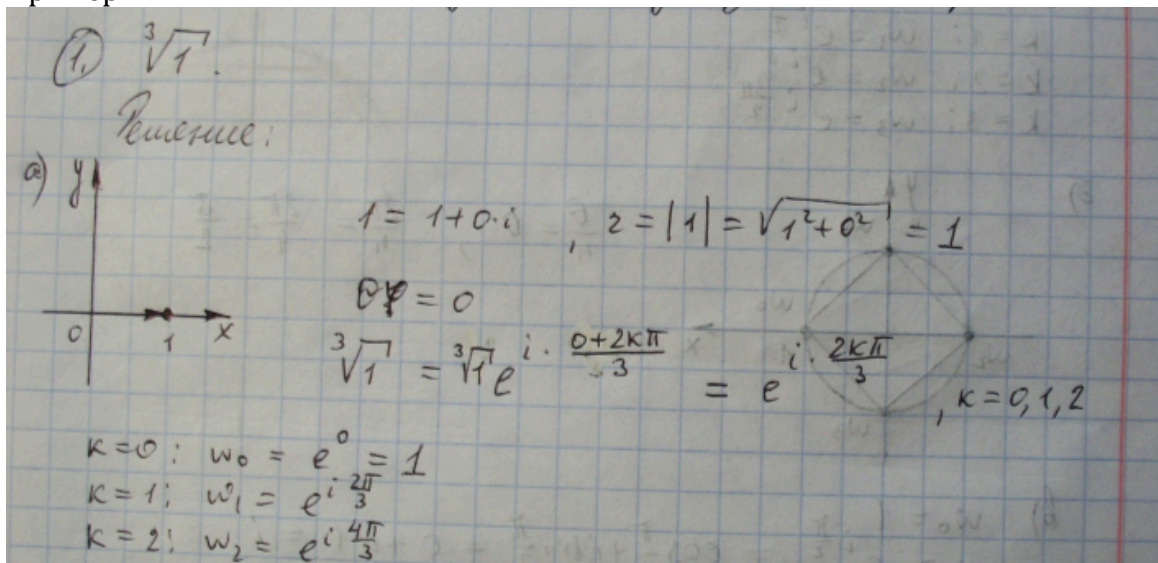 1. ∛1.
Решение:
а) y
0 1 x
1 = 1+0·i , r = |1| = √(1²+0²) = 1
φ = 0
∛1 = ∛1 e^(i·(0+2кπ)/3) = e^(i·2кπ/3) , к=0,1,2
к=0: w₀ = e⁰ = 1
к=1: w₁ = e^(i 2π/3)
к=2: w₂ = e^(i 4π/3)